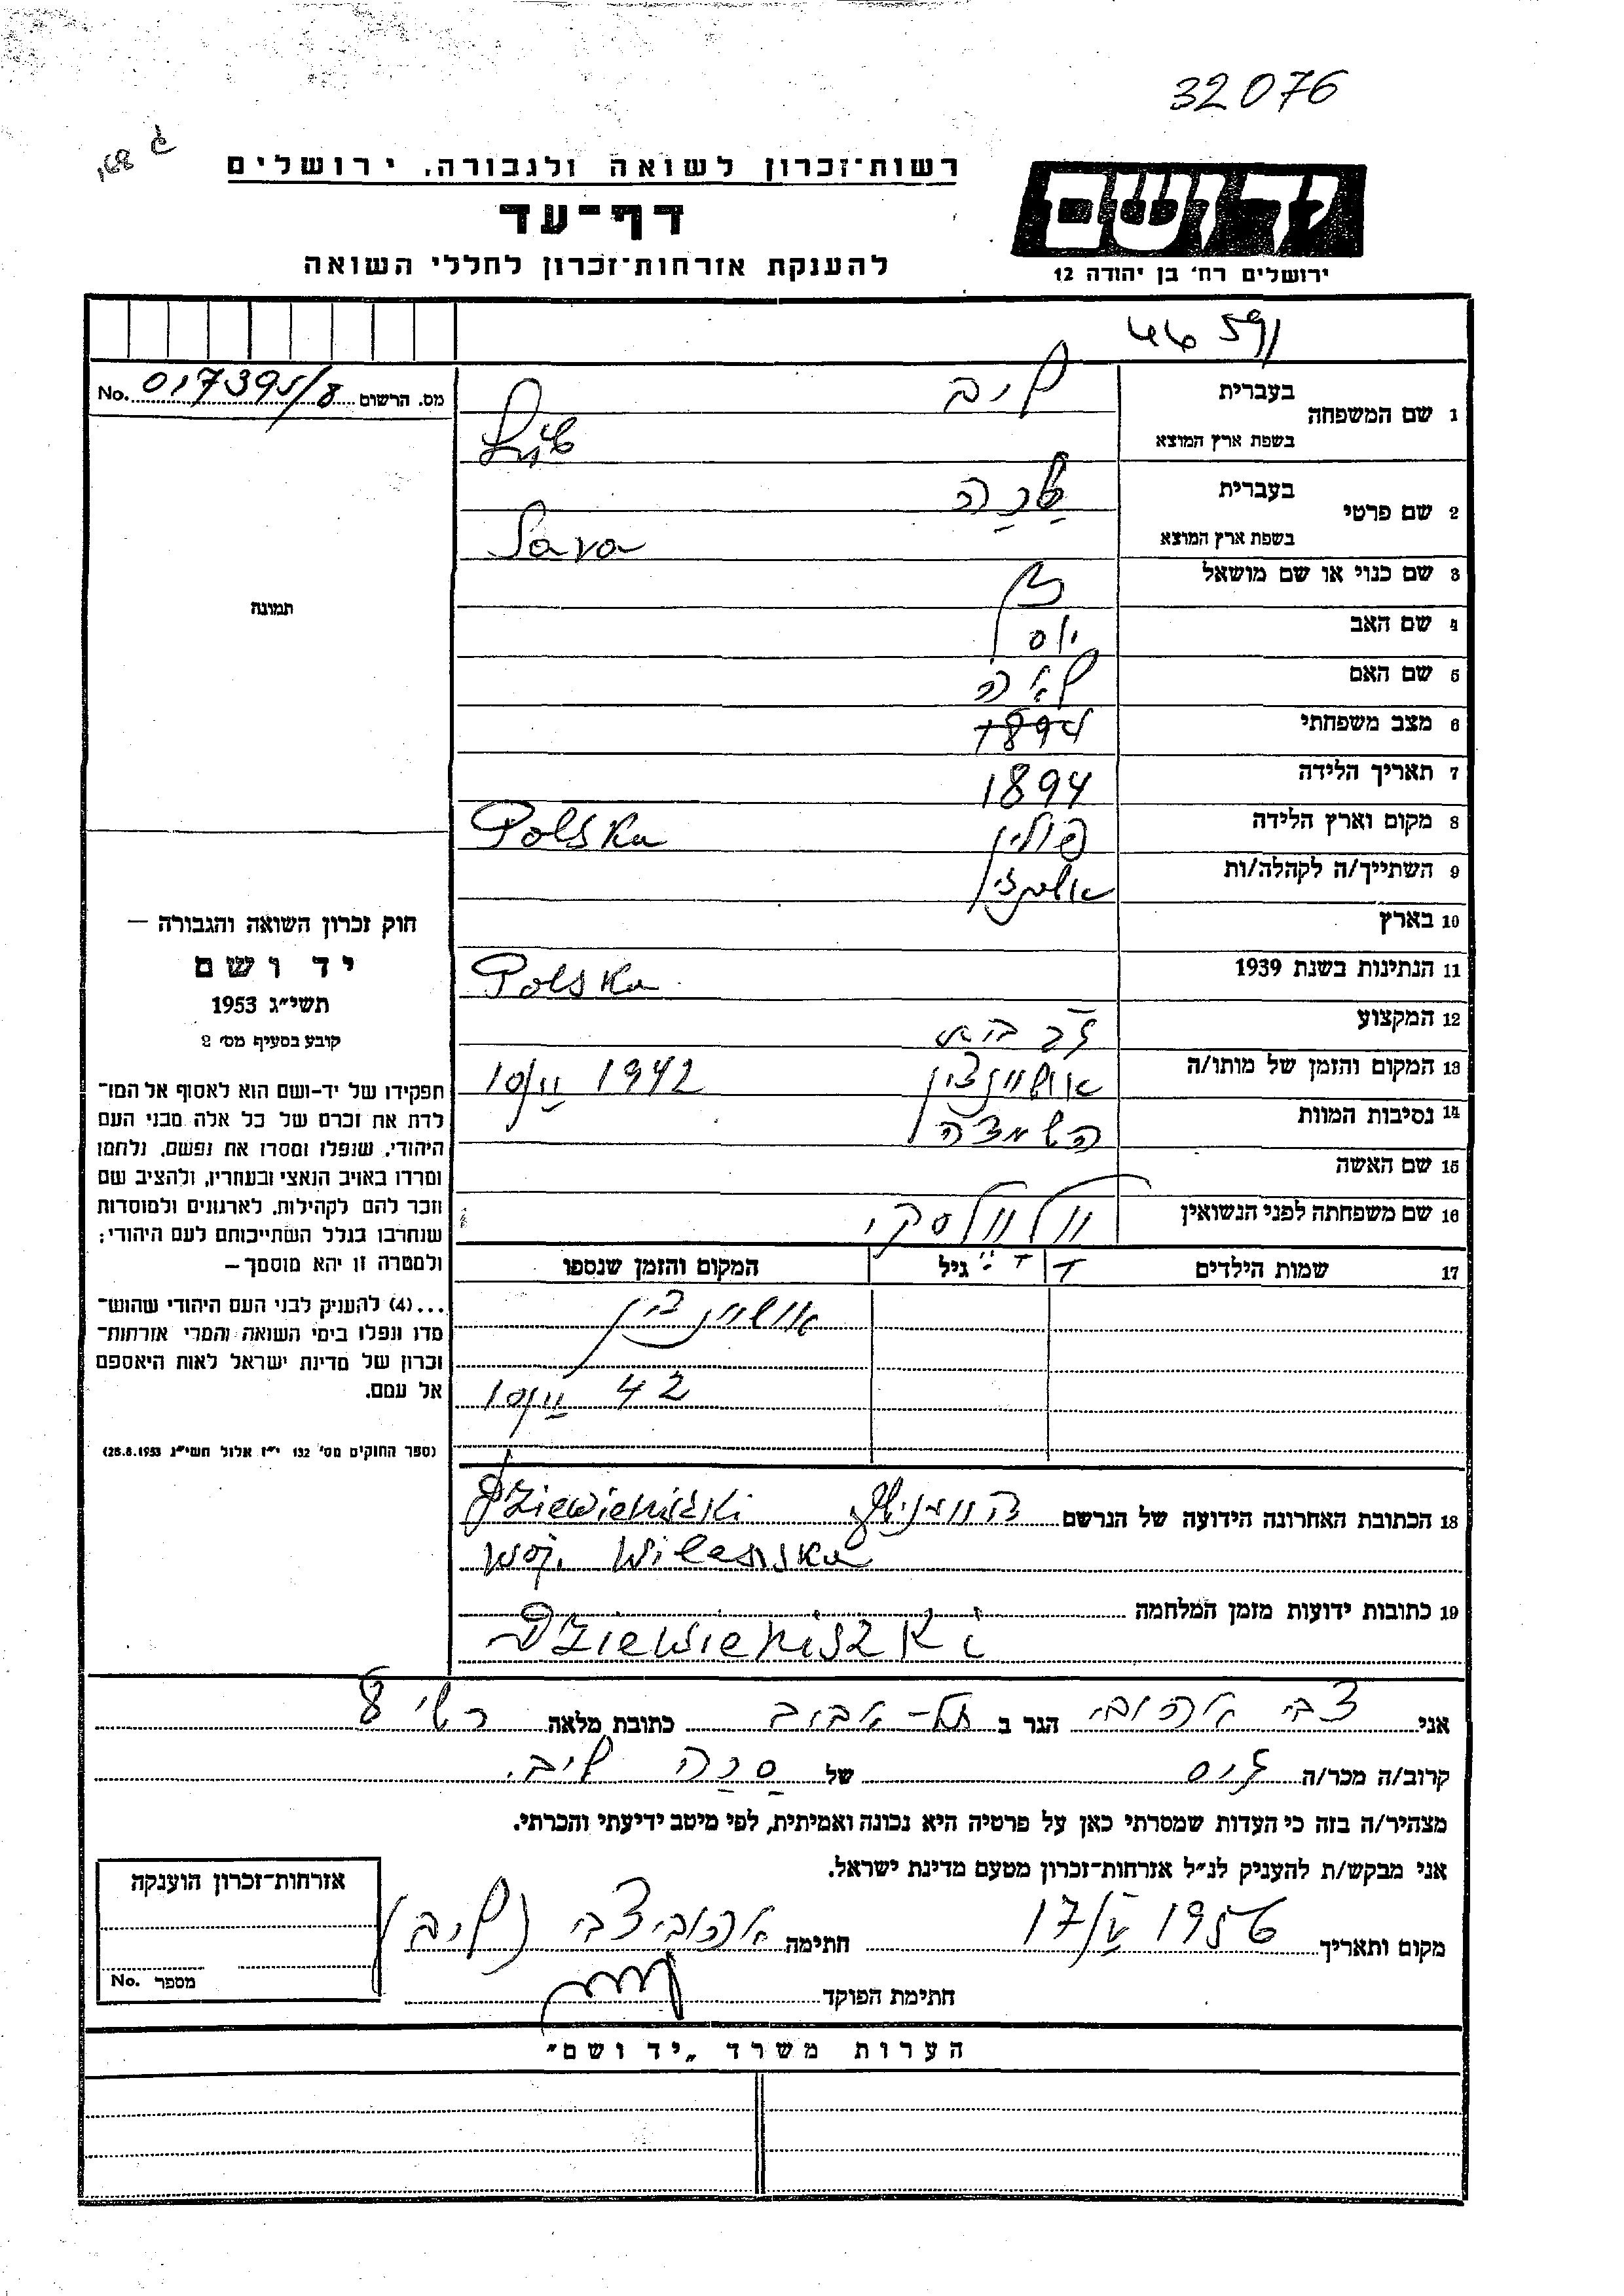 32076
רשות־זכרון לשואה ולגבורה, ירושלים
דף־עד
להענקת אזרחות־זכרון לחללי השואה
ידושם
ירושלים רח׳ בן יהודה 12
מס. הרשום 017395/8 No.
1 שם המשפחה
בעברית ליב
בשפת ארץ המוצא
2 שם פרטי
בעברית שרה
בשפת ארץ המוצא Sara
3 שם כנוי או שם מושאל
4 שם האב
5 שם האם לאה
6 מצב משפחתי 1894
7 תאריך הלידה 1894
8 מקום וארץ הלידה פולין Polska
9 השתייך/ה לקהלה/ות
10 בארץ
11 הנתינות בשנת 1939 Polska
12 המקצוע
13 המקום והזמן של מותו/ה 10/VI 1942
14 נסיבות המוות השמדה
15 שם האשה
16 שם משפחתה לפני הנשואין
17 שמות הילדים גיל המקום והזמן שנספו
10/VI 42
18 הכתובת האחרונה הידועה של הנרשם Dziewieniszki
woj. Wilenska
19 כתובות ידועות מזמן המלחמה
Dziewieniszki
תמונה
חוק זכרון השואה והגבורה —
יד ושם
תשי״ג 1953
קובע בסעיף מס׳ 2
תפקידו של יד-ושם הוא לאסוף אל המו־
לדת את זכרם של כל אלה מבני העם
היהודי, שנפלו ומסרו את נפשם, נלחמו
ומרדו באויב הנאצי ובעוזריו, ולהציב שם
וזכר להם לקהילות, לארגונים ולמוסדות
שנחרבו בגלל השתייכותם לעם היהודי;
ולמטרה זו יהא מוסמך —
...(4) להעניק לבני העם היהודי שהוש־
מדו ונפלו בימי השואה והמרי אזרחות־
זכרון של מדינת ישראל לאות היאספם
אל עמם.
(ספר החוקים מס׳ 132 י״ז אלול תשי״ג 28.8.1953)
אני צבי הגר ב תל-אביב כתובת מלאה רש״י 8
קרוב/ה מכר/ה גיס של שרה ליב.
מצהיר/ה בזה כי העדות שמסרתי כאן על פרטיה היא נכונה ואמיתית, לפי מיטב ידיעתי והכרתי.
אני מבקש/ת להעניק לנ״ל אזרחות־זכרון מטעם מדינת ישראל.
מקום ותאריך 17/V 1956 חתימה צבי (ליב)
חתימת הפוקד
אזרחות־זכרון הוענקה
מספר No.
הערות משרד „יד ושם״